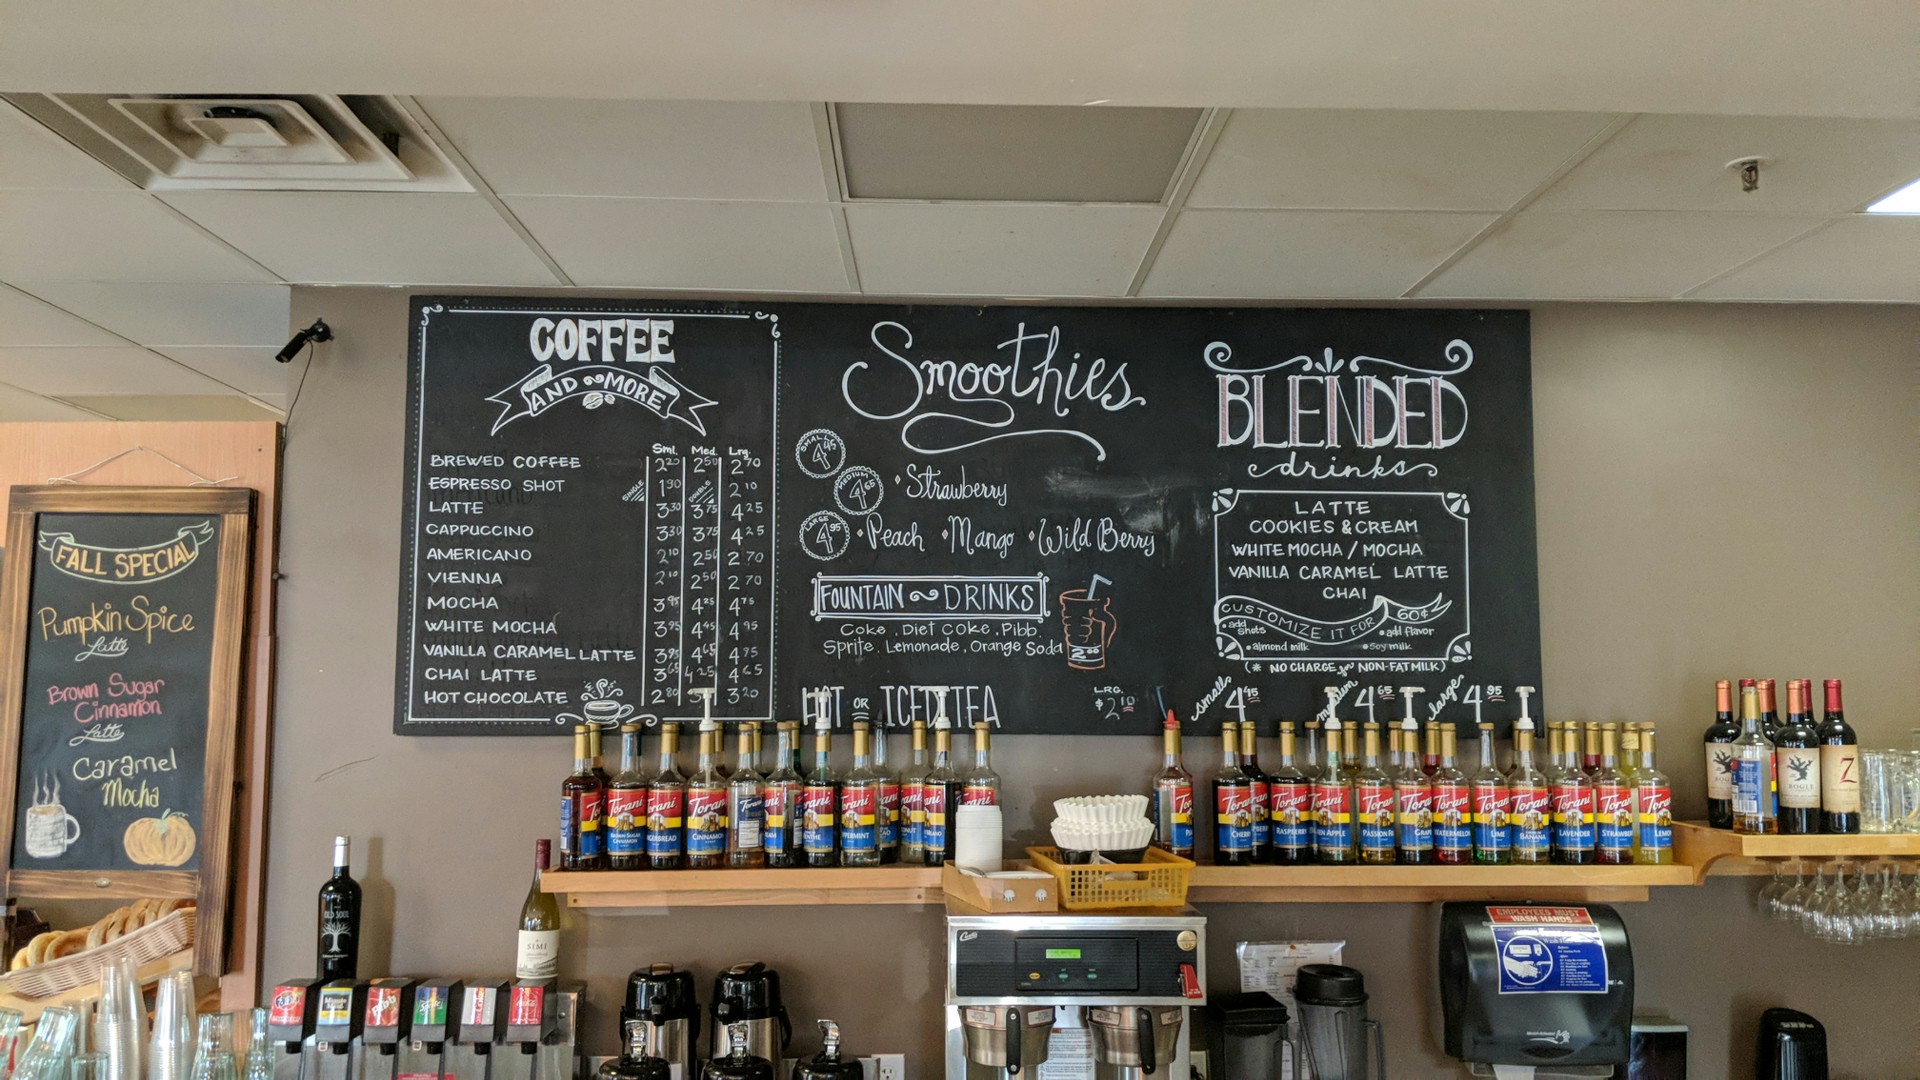 FALL SPECIAL
Pumpkin Spice
Latte
Brown Sugar
Cinnamon
Latte
Caramel
Mocha
COFFEE
AND MORE
Sml. Med. Lrg.
BREWED COFFEE 2 20 2 50 2 70
ESPRESSO SHOT SINGLE 1 90 DOUBLE 2 10
LATTE 3 30 3 75 4 25
CAPPUCCINO 3 30 3 75 4 25
AMERICANO 2 10 2 50 2 70
VIENNA 2 10 2 50 2 70
MOCHA 3 95 4 25 4 75
WHITE MOCHA 3 95 4 45 4 95
VANILLA CARAMEL LATTE 3 95 4 65 4 95
CHAI LATTE 3 65 4 25 4 65
HOT CHOCOLATE 2 80 3 20
Smoothies
SMALL 4 45
MEDIUM 4 65
LARGE 4 95
Strawberry
Peach Mango Wild Berry
FOUNTAIN DRINKS
Coke . Diet Coke . Pibb.
Sprite. Lemonade. Orange Soda
2 00
HOT OR ICED TEA
LRG.
$2 10
BLENDED
drinks
LATTE
COOKIES & CREAM
WHITE MOCHA / MOCHA
VANILLA CARAMEL LATTE
CHAI
CUSTOMIZE IT FOR 60¢
add shots
add flavor
almond milk
soy milk
(* NO CHARGE for NON-FAT MILK)
small 4 45
medium 4 65
large 4 95
Torani
BROWN SUGAR
CINNAMON
Torani
Torani
CINNAMON
Torani
Torani
Torani
CHERRY
Torani
RASPBERRY
Torani
Torani
Torani
WATERMELON
Torani
LIME
Torani
BANANA
Torani
LAVENDER
Torani
Torani
BOGLE
Z
OLD SOUL
SIMI
Curtis
Minute Maid
Pibb
EMPLOYEES MUST
WASH HANDS